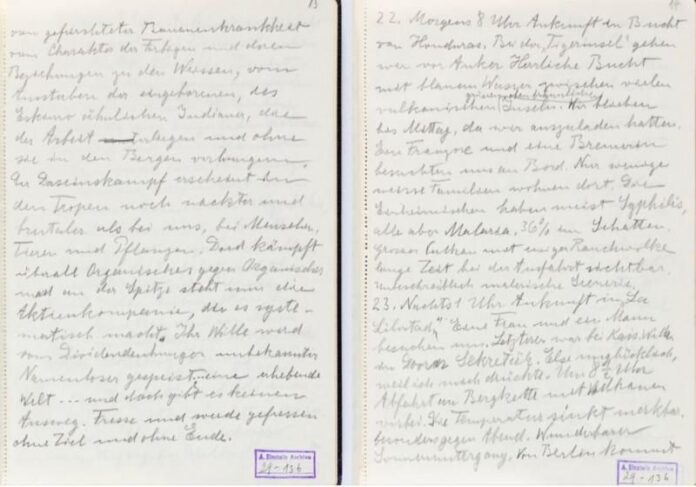 13
von gefürchteter Bananenkrankheit
vom Charakter der Farbigen und deren
Beziehungen zu den Weissen, vom
Aussterben der eingeborenen, den
Eskimo ähnlichen Indianer, die
der Arbeit erliegen und ohne
sie in den Bergen verhungern.
Der Daseinskampf erscheint in
den Tropen noch nackter und
brutaler als bei uns, bei Menschen,
Tieren und Pflanzen. Dort kämpft
überall Organisches gegen Organisches
und an der Spitze steht nur eine
Aktienkompanie, die es syste-
matisch macht. Ihr Wille wird
vom Dividendenhunger unbekannter
Namenloser gespeist, eine erhebende
Welt --- und doch gibt es keinen
Ausweg. Fresse und werde gefressen
ohne Ziel und ohne Ende.
A. Einstein Archive
29-136
14
22. Morgens 8 Uhr Ankunft in Bucht
von Honduras. Bei der "Tigerinsel" gehen
wir vor Anker Herrliche Bucht
mit blauem Wasser zwischen vielen
vulkanischen Inseln. Wir blieben
bis Mittag, da wir auszuladen hatten.
Ein Franzose und eine Bremerin
besuchten uns an Bord. Nur wenige
weisse Familien wohnen dort. Die
Einheimischen haben meist Syphilis,
alle aber Malaria. 36% im Schatten.
Grosser Vulkan mit riesiger Rauchwolke
lange Zeit bei der Ausfahrt sichtbar.
unbeschreiblich malerische Scenerie.
23. Nachts 1 Uhr Ankunft in "La
Libertad". Eine Frau und ein Mann
besuchen uns. Letzterer war bei Kais. Wilh.
in Doorn Sekretär. Else unglücklich,
weil ich mich drückte. Um 8½ Uhr
Abfahrt an Bergkette mit Vulkanen
vorbei. Die Temperatur sinkt merkbar,
besonders gegen Abend. Wunderbarer
Sonnenuntergang. Von Berlin kommt
A. Einstein Archive
29-136